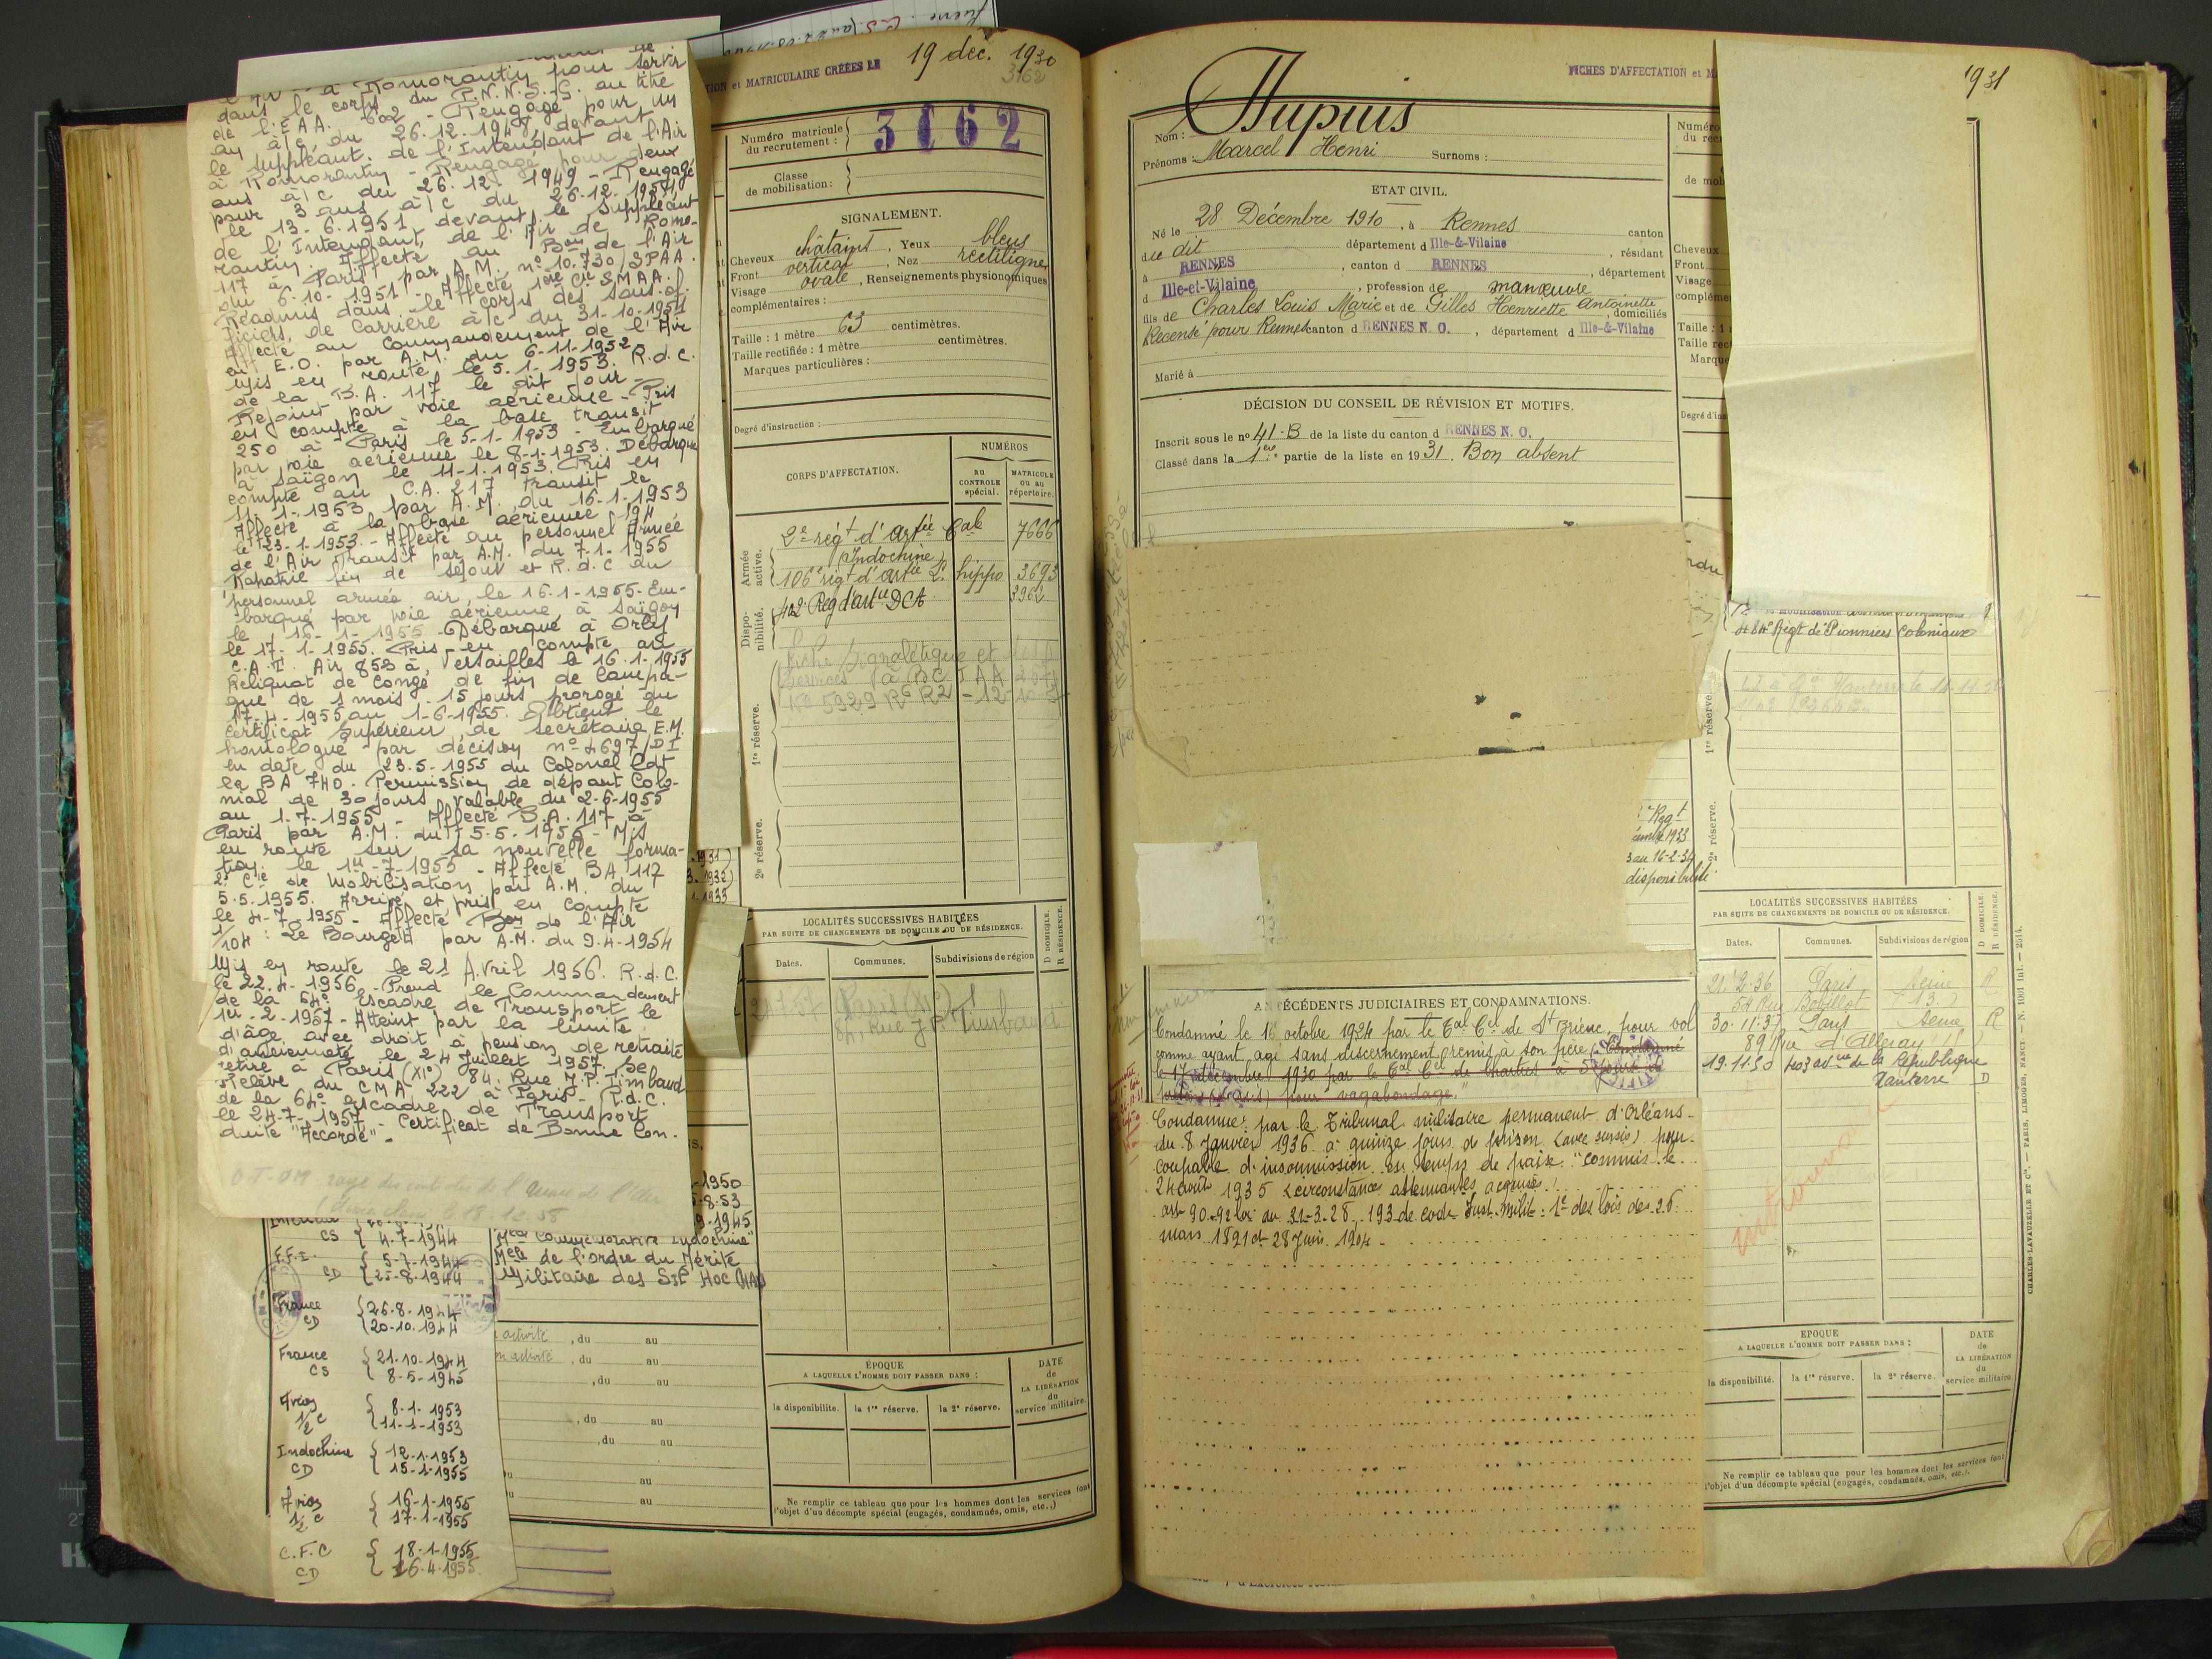 à Romorantin pour servir
dans le corps du P.N.N.S.G. au titre
de l'E.A.A. 602 - Rengagé pour un
an à/c du 26.12.1948 devant
le suppléant de l'Intendant de l'Air
à Romorantin - Rengagé pour deux
ans à/c du 26.12.1949 - Rengagé
pour 3 ans à/c du 26.12.1951
le 13.6.1951 devant le suppléant
de l'Intendant de l'Air de Romo-
rantin. Affecté au Bon de l'Air
117 à Paris par A.M. n° 10.730/SPAA
du 6-10-1951 - Affecté 1ère Cie SMAA.
Réadmis dans le corps des sous-of.
ficiers de Carrière à/c du 31-10-1951
Affecté au Commandement de l'Air
en E.O. par A.M. du 6-11-1952
Mis en route le 5.1.1953. R.d.C.
de la B.A. 117 le dit jour -
Rejoint par voie aérienne - Pris
en compte à la base transit
250 à Paris le 5-1-1953 - Embarqué
par voie aérienne le 8-1-1953. Débarqué
à Saïgon le 11-1-1953. Pris en
compte au C.A. 217 Transit le
11-1-1953 par A.M. du 16-1-1953
Affecté à la base aérienne 194
le 23-1-1953. - Affecté au personnel Armée
de l'Air Transit par A.M. du 7-1-1955
Rapatrié fin de séjour et R.d.C du
personnel armée air, le 16-1-1955- Em-
barqué par voie aérienne, à Saïgon
le 16-1-1955 - Débarqué à Orly
le 17-1-1955. Pris en compte au
C.A.T. Air 853 à Versailles le 16-1-1955
Reliquat de Congé de fin de Campa-
gne de 1 mois 15 jours prorogé du
17-4-1955 au 1-6-1955. Obtient le
Certificat supérieur de secrétaire E.M.
homologué par décision n° 4697/DI
en date du 23.5.1955 du Colonel Cdt
la BA 740. Permission de départ Colo-
nial de 30 jours valable du 2-6-1955
au 1-7-1955 - Affecté B.A. 117 à
Paris par A.M. du 5.5.1955 - Mis
en route sur sa nouvelle forma-
tion le 1er-7-1955 - Affecté BA 117
2e Cie de Mobilisation par A.M. du
5.5.1955. Arrivé et pris en compte
le 4-7-1955 - Affecté Bon de l'Air
1/104 : Le Bourget par A.M. du 9.4.1954
Mis en route le 21 Avril 1956. R.d.C.
le 22.4.1956 - Prend le Commandement
de la 64e Escadre de Transport le
1er-2-1957 - Atteint par la limite
d'âge avec droit à pension de retraite
d'ancienneté le 24 Juillet 1957. Se
retire à Paris (XI°) 84. Rue J.P. Timbaud
Relève du CMA 222 à Paris - R.d.C.
de la 64e Escadre de Transport
le 24-7-1957 - Certificat de Bonne Con-
duite "Accordé" -
CS 4-7-1944
F.F.I. 5-7-1944
CD 25-8-1944
France 26.8.1944
CD 20-10.1944
France 21.10-1944
CS 8-5-1945
Avion 8-1-1953
1/2 C 11-1-1953
Indochine 12-1-1953
CD 15-1-1955
Avion 16-1-1955
1/2 C 17-1-1955
C.F.C 18-1-1955
CD 16.4.1955
-1950
5-8.53
9-1945
Mlle Commémorative Indochine"
Mlle de l'ordre du Mérite
Militaire des SIP HOC
, du au
, du au
, du au
, du au
, du au
au
au
ION et MATRICULAIRE CRÉÉES LE 19 déc. 1930
3162
Numéro matricule du recrutement : 3162
Classe de mobilisation :
SIGNALEMENT.
Cheveux châtains. Yeux bleus
Front vertical, Nez rectiligne
Visage ovale, Renseignements physionomiques
complémentaires :
Taille : 1 mètre 63 centimètres.
Taille rectifiée : 1 mètre centimètres.
Marques particulières :
Degré d'instruction :
CORPS D'AFFECTATION.
NUMÉROS
au CONTROLE spécial.
MATRICULE ou au répertoire.
Armée active.
2e régt d'artie Cale 7666
(Indochine)
106e régt d'artie L. hippo 3693
Disponibilité.
402e Reg d'artie DCA 3962
1re réserve.
2e réserve.
LOCALITÉS SUCCESSIVES HABITÉES
PAR SUITE DE CHANGEMENTS DE DOMICILE OU DE RÉSIDENCE.
D DOMICILE.
R RÉSIDENCE.
Dates. Communes. Subdivisions de région
Paris (XI°)
84, Rue J P. Timbaud
ÉPOQUE
A LAQUELLE L'HOMME DOIT PASSER DANS :
DATE de LA LIBÉRATION du service militaire.
la disponibilité. la 1re réserve. la 2e réserve.
Ne remplir ce tableau que pour les hommes dont les services font
l'objet d'un décompte spécial (engagés, condamnés, omis, etc.,)
FICHES D'AFFECTATION et M
1931
Nom : Dupuis
Prénoms : Marcel Henri Surnoms :
ETAT CIVIL.
Né le 28 Décembre 1910, à Rennes canton
du dit département d Ille-&-Vilaine, résidant
à RENNES, canton d RENNES, département
d Ille-et-Vilaine, profession de manœuvre
fils de Charles Louis Marie et de Gilles Henriette Antoinette, domiciliés
Recensé pour Rennes canton d RENNES N. O., département d Ille-&-Vilaine
Marié à
DÉCISION DU CONSEIL DE RÉVISION ET MOTIFS.
Inscrit sous le no 41-B de la liste du canton d RENNES N. O.
Classé dans la 1ere partie de la liste en 1931. Bon absent
ANTÉCÉDENTS JUDICIAIRES ET CONDAMNATIONS.
Condamné le 16 octobre 1924 par le Cal Cel de St Brieuc, pour vol
comme ayant agi sans discernement, remis à son père (Condamné
le 17 décembre 1930 par le Cal Cel de Chartres à 5 jours de
pour vagabondage.
Condamné par le Tribunal militaire permanent d'Orléans
du 8 Janvier 1936 à quinze jours de prison (avec sursis) pour
coupable d'insoumission en temps de paix "commis le
24 août 1935 (circonstances atténuantes acquises)
art 90-92 loi du 31-3-28, 193 de code Just. milit. 1e des lois des 26
mars 1891 et 28 Juin 1904 -
Numéro
du recr
de mob
Cheveux
Front
Visage
compléme
Taille : 1
Taille rect
Marque
Degré d'ins
484e Régt de Pionniers Coloniaux
1re réserve.
2e réserve.
Regt
3 au 16-2-34
disponibilité
LOCALITÉS SUCCESSIVES HABITÉES
PAR SUITE DE CHANGEMENTS DE DOMICILE OU DE RÉSIDENCE.
D DOMICILE.
R RÉSIDENCE.
Dates. Communes. Subdivisions de région
21.2-36 Paris Seine R
54 Rue Bobillot (13)
30.11.37 Paris Seine R
89 Rue d'Alleray
19.11.50 103 avue de la République
Nanterre D
EPOQUE
A LAQUELLE L'HOMME DOIT PASSER DANS :
DATE de LA LIBÉRATION du service militaire
la disponibilité. la 1re réserve. la 2e réserve.
Ne remplir ce tableau que pour les hommes dont les services font
l'objet d'un décompte spécial (engagés, condamnés, omis, etc.,).
CHARLES-LAVAUZELLE ET Cie. — PARIS, LIMOGES, NANCY. — N. 1001 Int. — 2514.